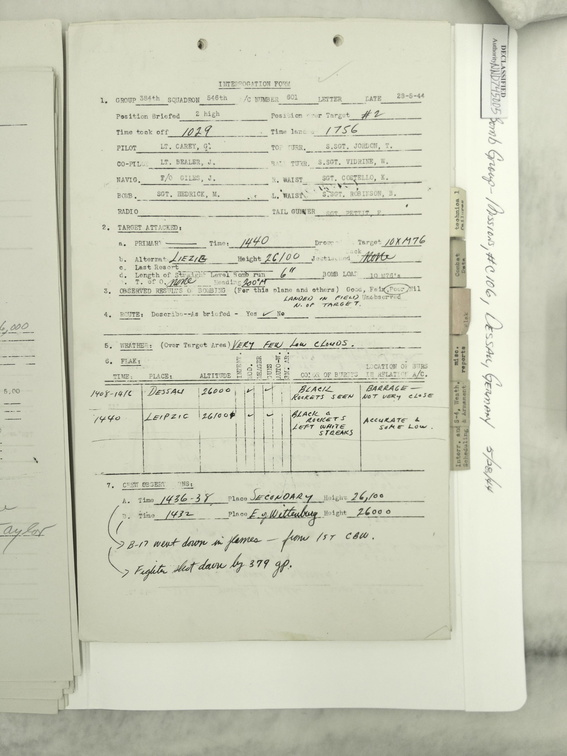 INTERROGATION FORM
1. GROUP 384th SQUADRON 546th A/C NUMBER 601 LETTER DATE 28-5-44
Position Briefed 2 high Position over Target #2
Time took off 1029 Time landed 1756
PILOT LT. CAREY, Q. TOP TURR. S.SGT. JORDON, T.
CO-PILOT LT. BEALER, J. BALL TURR. S.SGT. VIDRINE, W.
NAVIG. F/O GILES, J. R. WAIST SGT. COSTELLO, K.
BOMB. SGT. HEDRICK, M. L. WAIST S.SGT. ROBINSON, B.
RADIO TAIL GUNNER SGT.
2. TARGET ATTACKED:
a. PRIMARY Time: 1440 Target 10XM76
b. Alternat LIEZIG Height 26100 None
c. Last Resort
d. Length of Straight Level Bomb run 6" BOMB LOAD
T. of O. None Heading 200°M
3. OBSERVED RESULTS OF BOMBING (For this plane and others) Good, Fair, Poor, Nil
LANDED IN FIELD Unobserved
N. OF TARGET.
4. ROUTE: Describe--As briefed - Yes ✓ No
5. WEATHER: (Over Target Area) VERY FEW LOW CLOUDS.
6. FLAK:
TIME: PLACE: ALTITUDE COLOR OF BURSTS LOCATION OF BURSTS IN RELATION A/C.
DESSAU 26000 ✓ ✓ BLACK BARRAGE —
ROCKETS SEEN NOT VERY CLOSE
1440 LEIPZIG 26100 ✓ ✓ BLACK & ACCURATE &
ROCKETS SOME LOW.
LEFT WHITE
STREAKS
7.
A. Time 1436-38 Place SECONDARY Height 26,100
B. Time 1432 Place E. of Wittenburg Height 26000
B-17 went down in flames — from 1ST CBW.
Fighter shot down by 379 gp.
DECLASSIFIED
Authority NND745005
Bomb Group - Mission, #C106, Dessau, Germany 5/28/44
technical
Combat
Data
misc.
reports
Interr. and S-4, Weath.
aylor